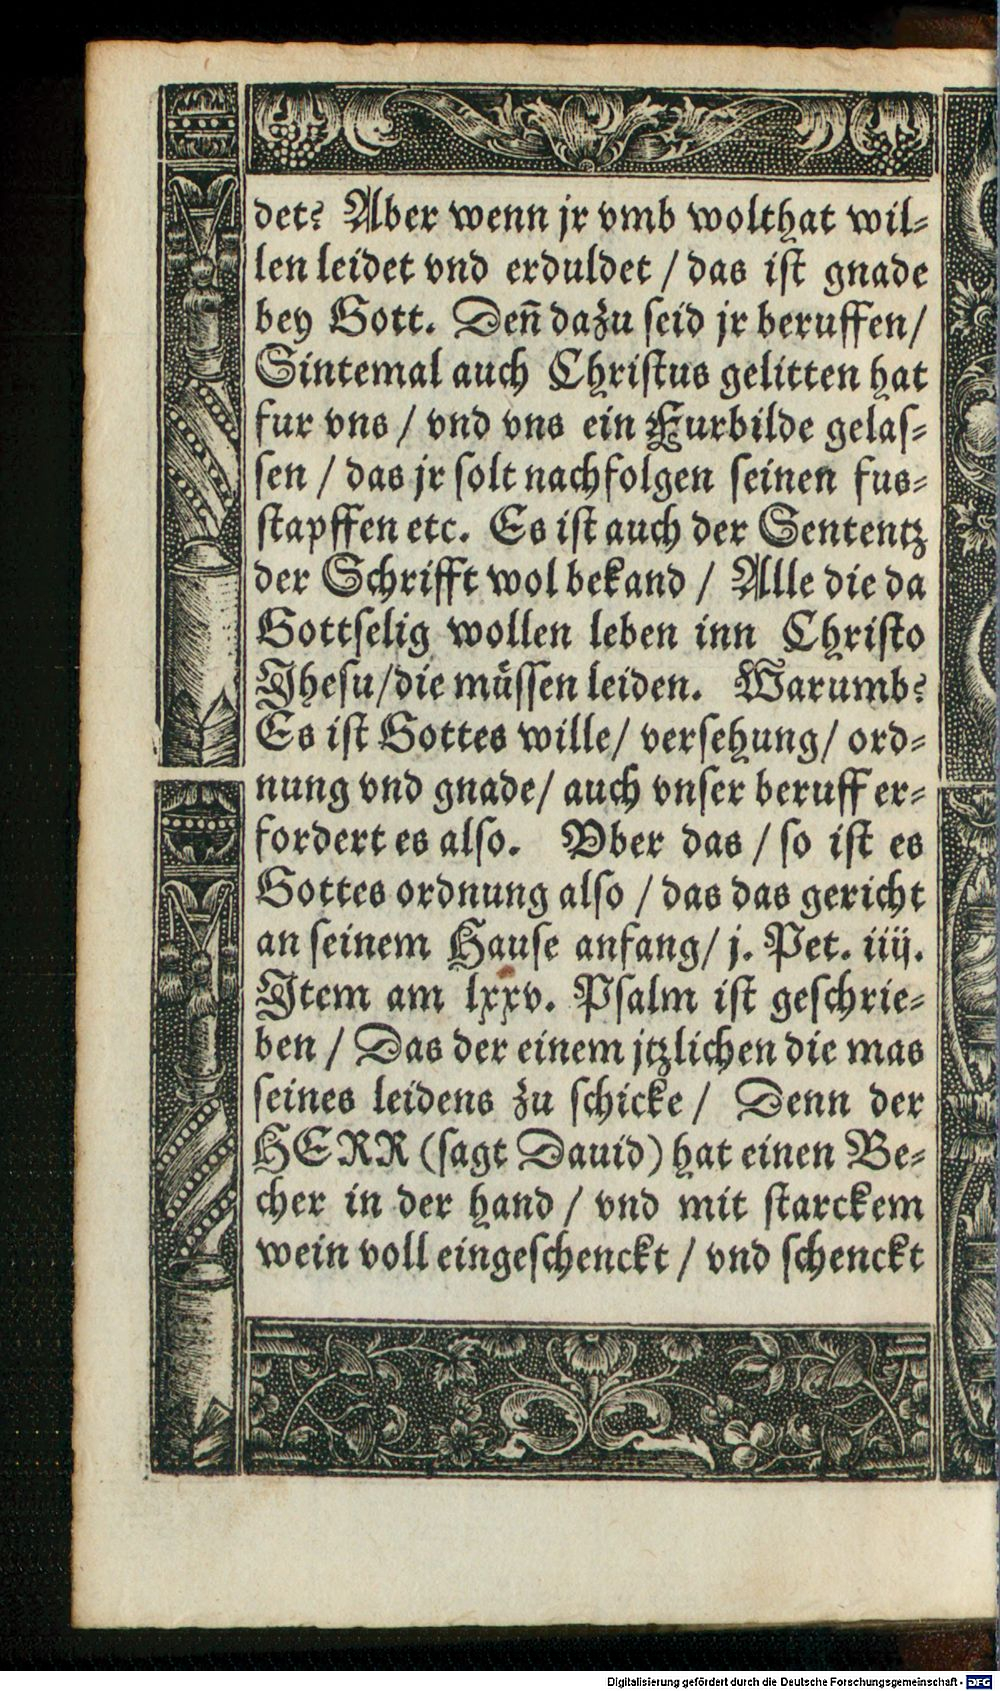 det? Aber wenn jr vmb wolthat wil⸗
len leidet vnd erduldet / das ist gnade
bey Gott. Deñ dazu seid jr beruffen/
Sintemal auch Christus gelitten hat
fur vns / vnd vns ein Furbilde gelas⸗
sen / das jr solt nachfolgen seinen fus⸗
stapffen etc. Es ist auch der Sententz
der Schrifft wol bekand / Alle die da
Gottselig wollen leben inn Christo
Jhesu/die müssen leiden. Warumb?
Es ist Gottes wille/ versehung/ ord⸗
nung vnd gnade/ auch vnser beruff er⸗
fordert es also. Vber das / so ist es
Gottes ordnung also / das das gericht
an seinem Hause anfang/ j. Pet. iiij.
Jtem am lxxv. Psalm ist geschrie⸗
ben / Das der einem jtzlichen die mas
seines leidens zu schicke / Denn der
HERR (sagt Dauid) hat einen Be⸗
cher in der hand / vnd mit starckem
wein voll eingeschenckt / vnd schenckt
Digitalisierung gefördert durch die Deutsche Forschungsgemeinschaft - DFG